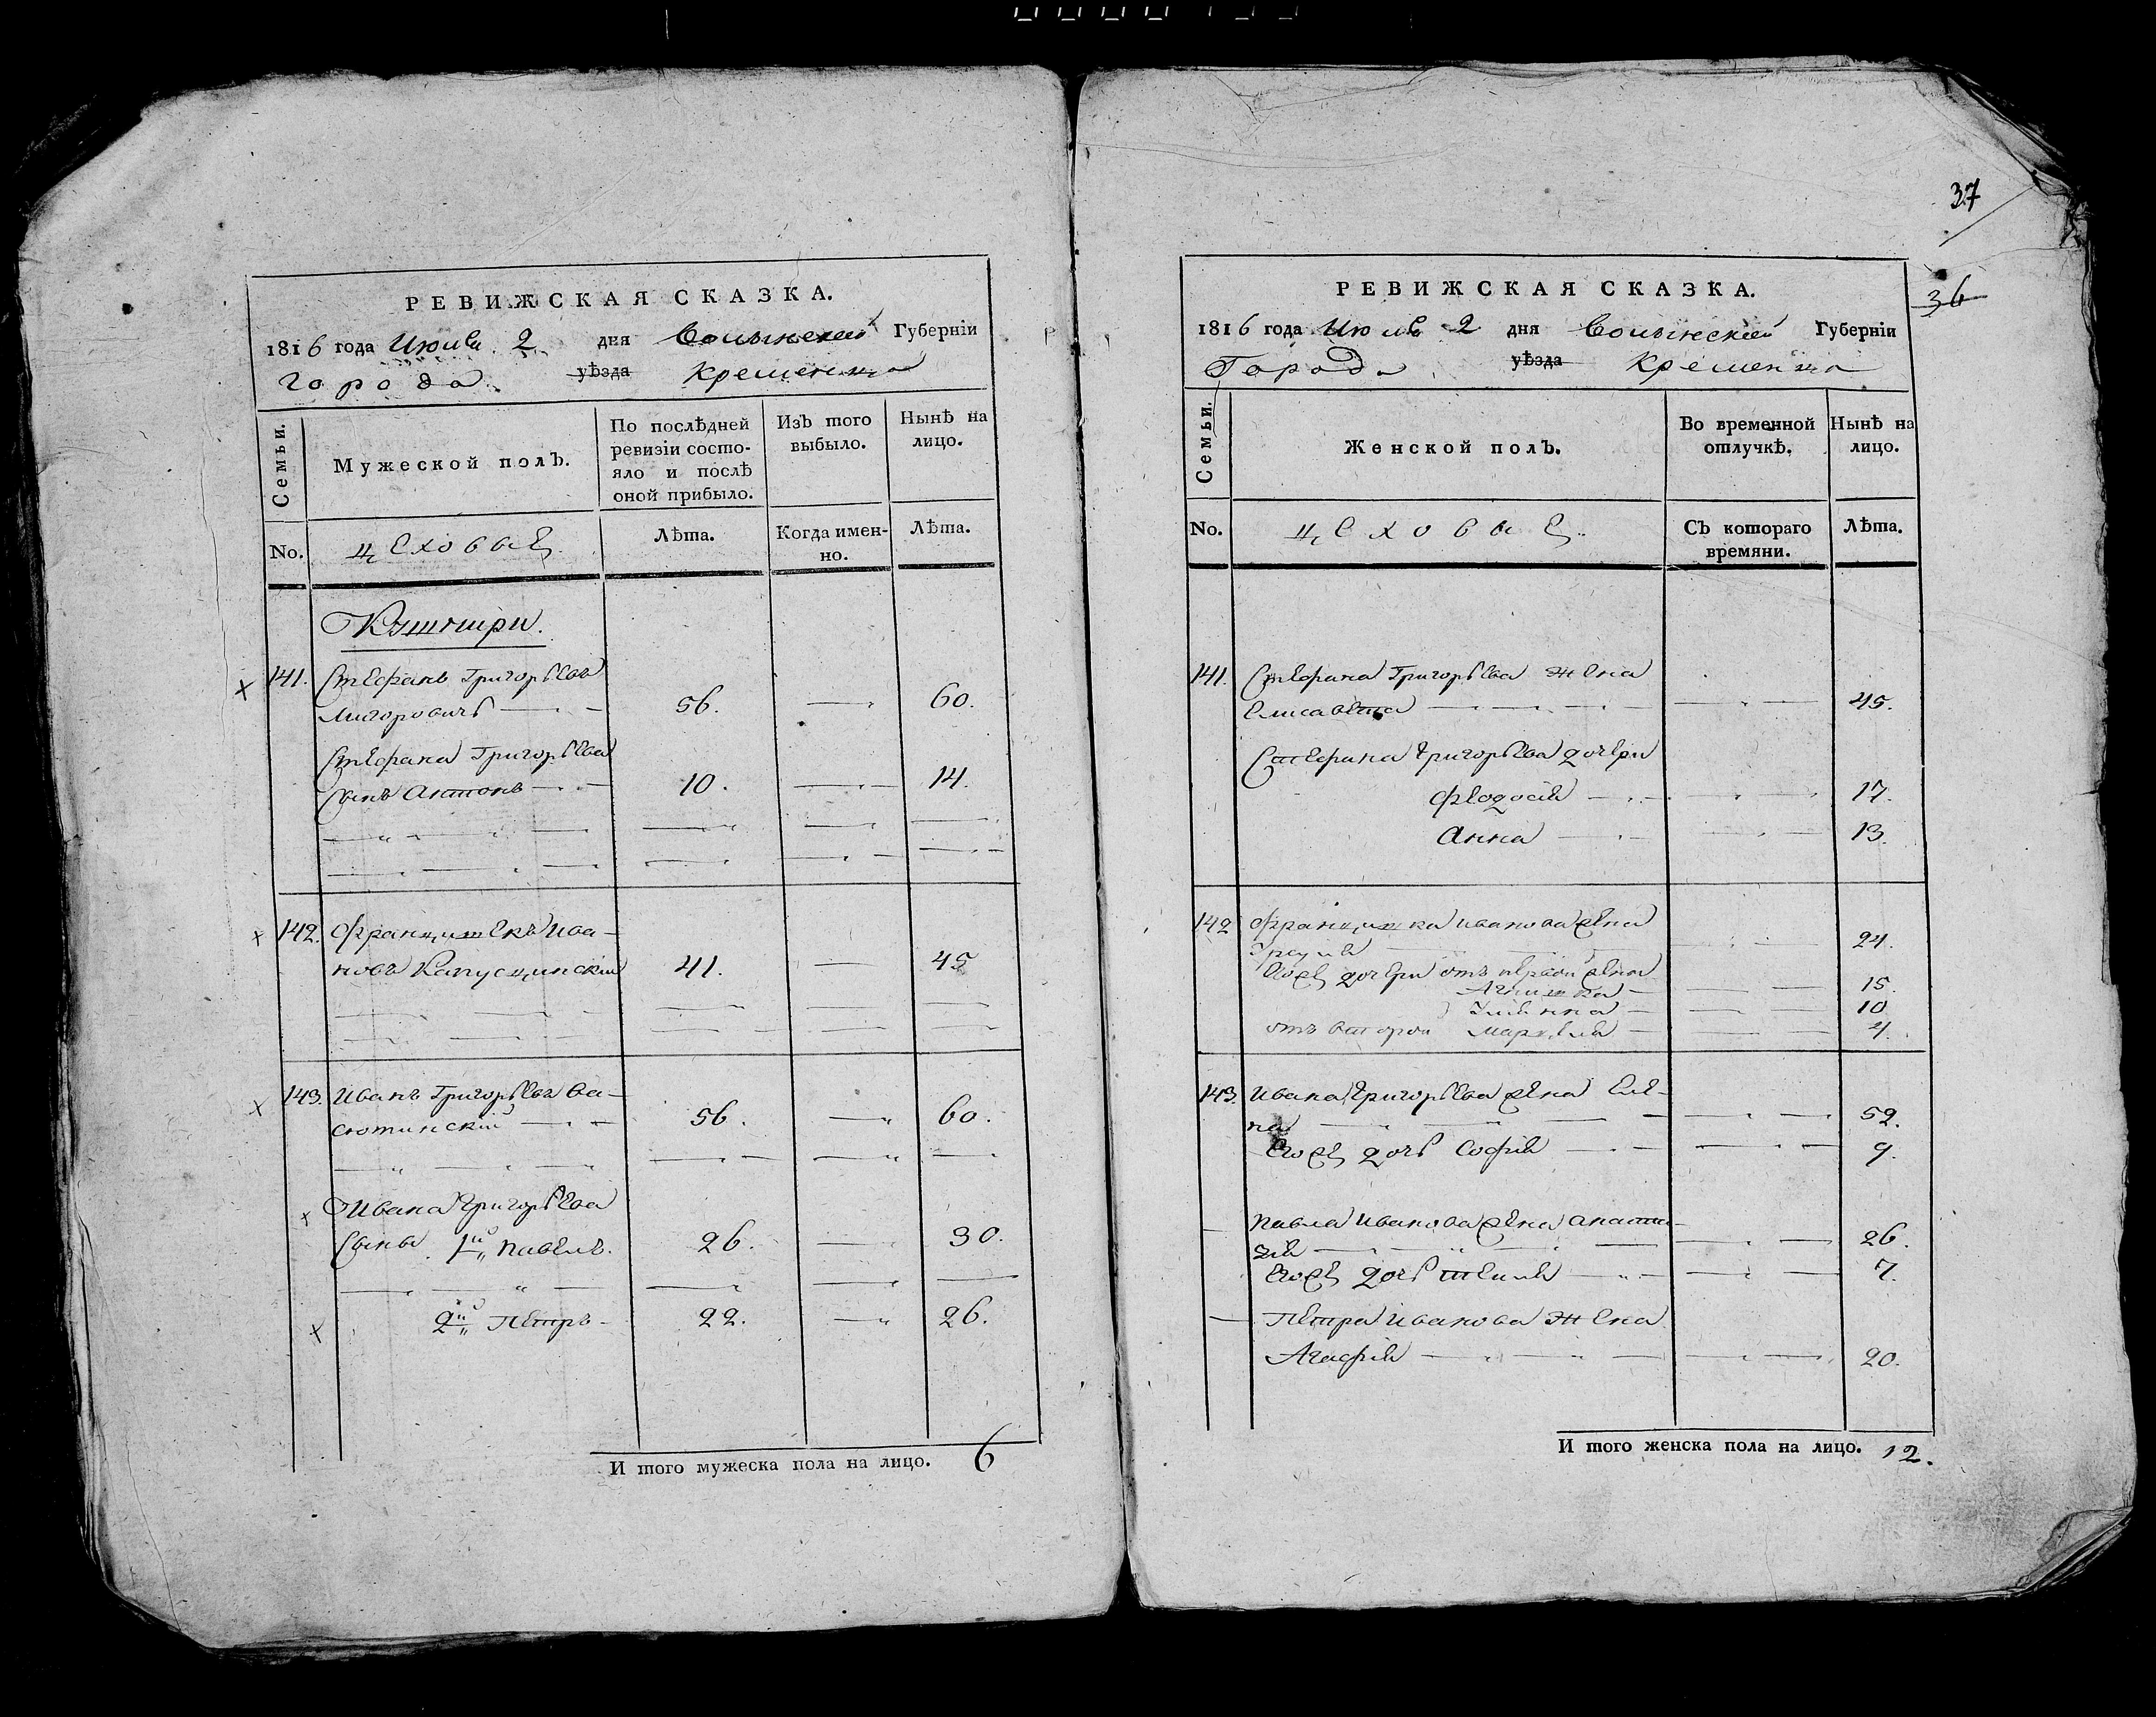 РЕВИЖСКАЯ СКАЗКА.
1816 года Июля 2 дня Волынской Губернїи
города уѣзда Кременца
Семьи.
Мужеской полъ.
По послѣдней ревизїи состояло и послѣ оной прибыло.
Изъ того выбыло.
Нынѣ на лицо.
No.
цеховые
Лѣта.
Когда именно.
Лѣта.
141. Стефанъ Григорьевъ
56. 60.
Стефана Григорьева
сынъ Антонъ 10. 14.
142. Францишекъ Ива-
новъ Капусцинскій 41. 45
143. Иванъ Григорьевъ Ва-
сютинскій 56. 60.
Ивана Григорьева
сыны 1й Павелъ. 26. 30.
2й Петръ 22. 26.
И того мужеска пола на лицо. 6
37
36
РЕВИЖСКАЯ СКАЗКА.
1816 года Июля 2 дня Волынской Губернїи
Города уѣзда Кременца
Семьи.
Женской полъ.
Во временной отлучкѣ.
Нынѣ на лицо.
No.
цеховые.
Съ котораго времяни.
Лѣта.
141. Стефана Григорьева жена
Елисавета 45.
Стефана Григорьева дочери
Феодосія 17.
Анна 13.
142 Францишка Иванова жена
24.
Его же дочери отъ первой жены
Агнишка 15.
10
отъ второй Марцеля 4.
143. Ивана Григорьева жена Еле-
на 52.
Его же дочь Софія 9.
Павла Иванова жена Анаста-
зія 26.
Его же дочь Текля 7.
Петра Иванова жена
Агафія 20.
И того женска пола на лицо. 12.